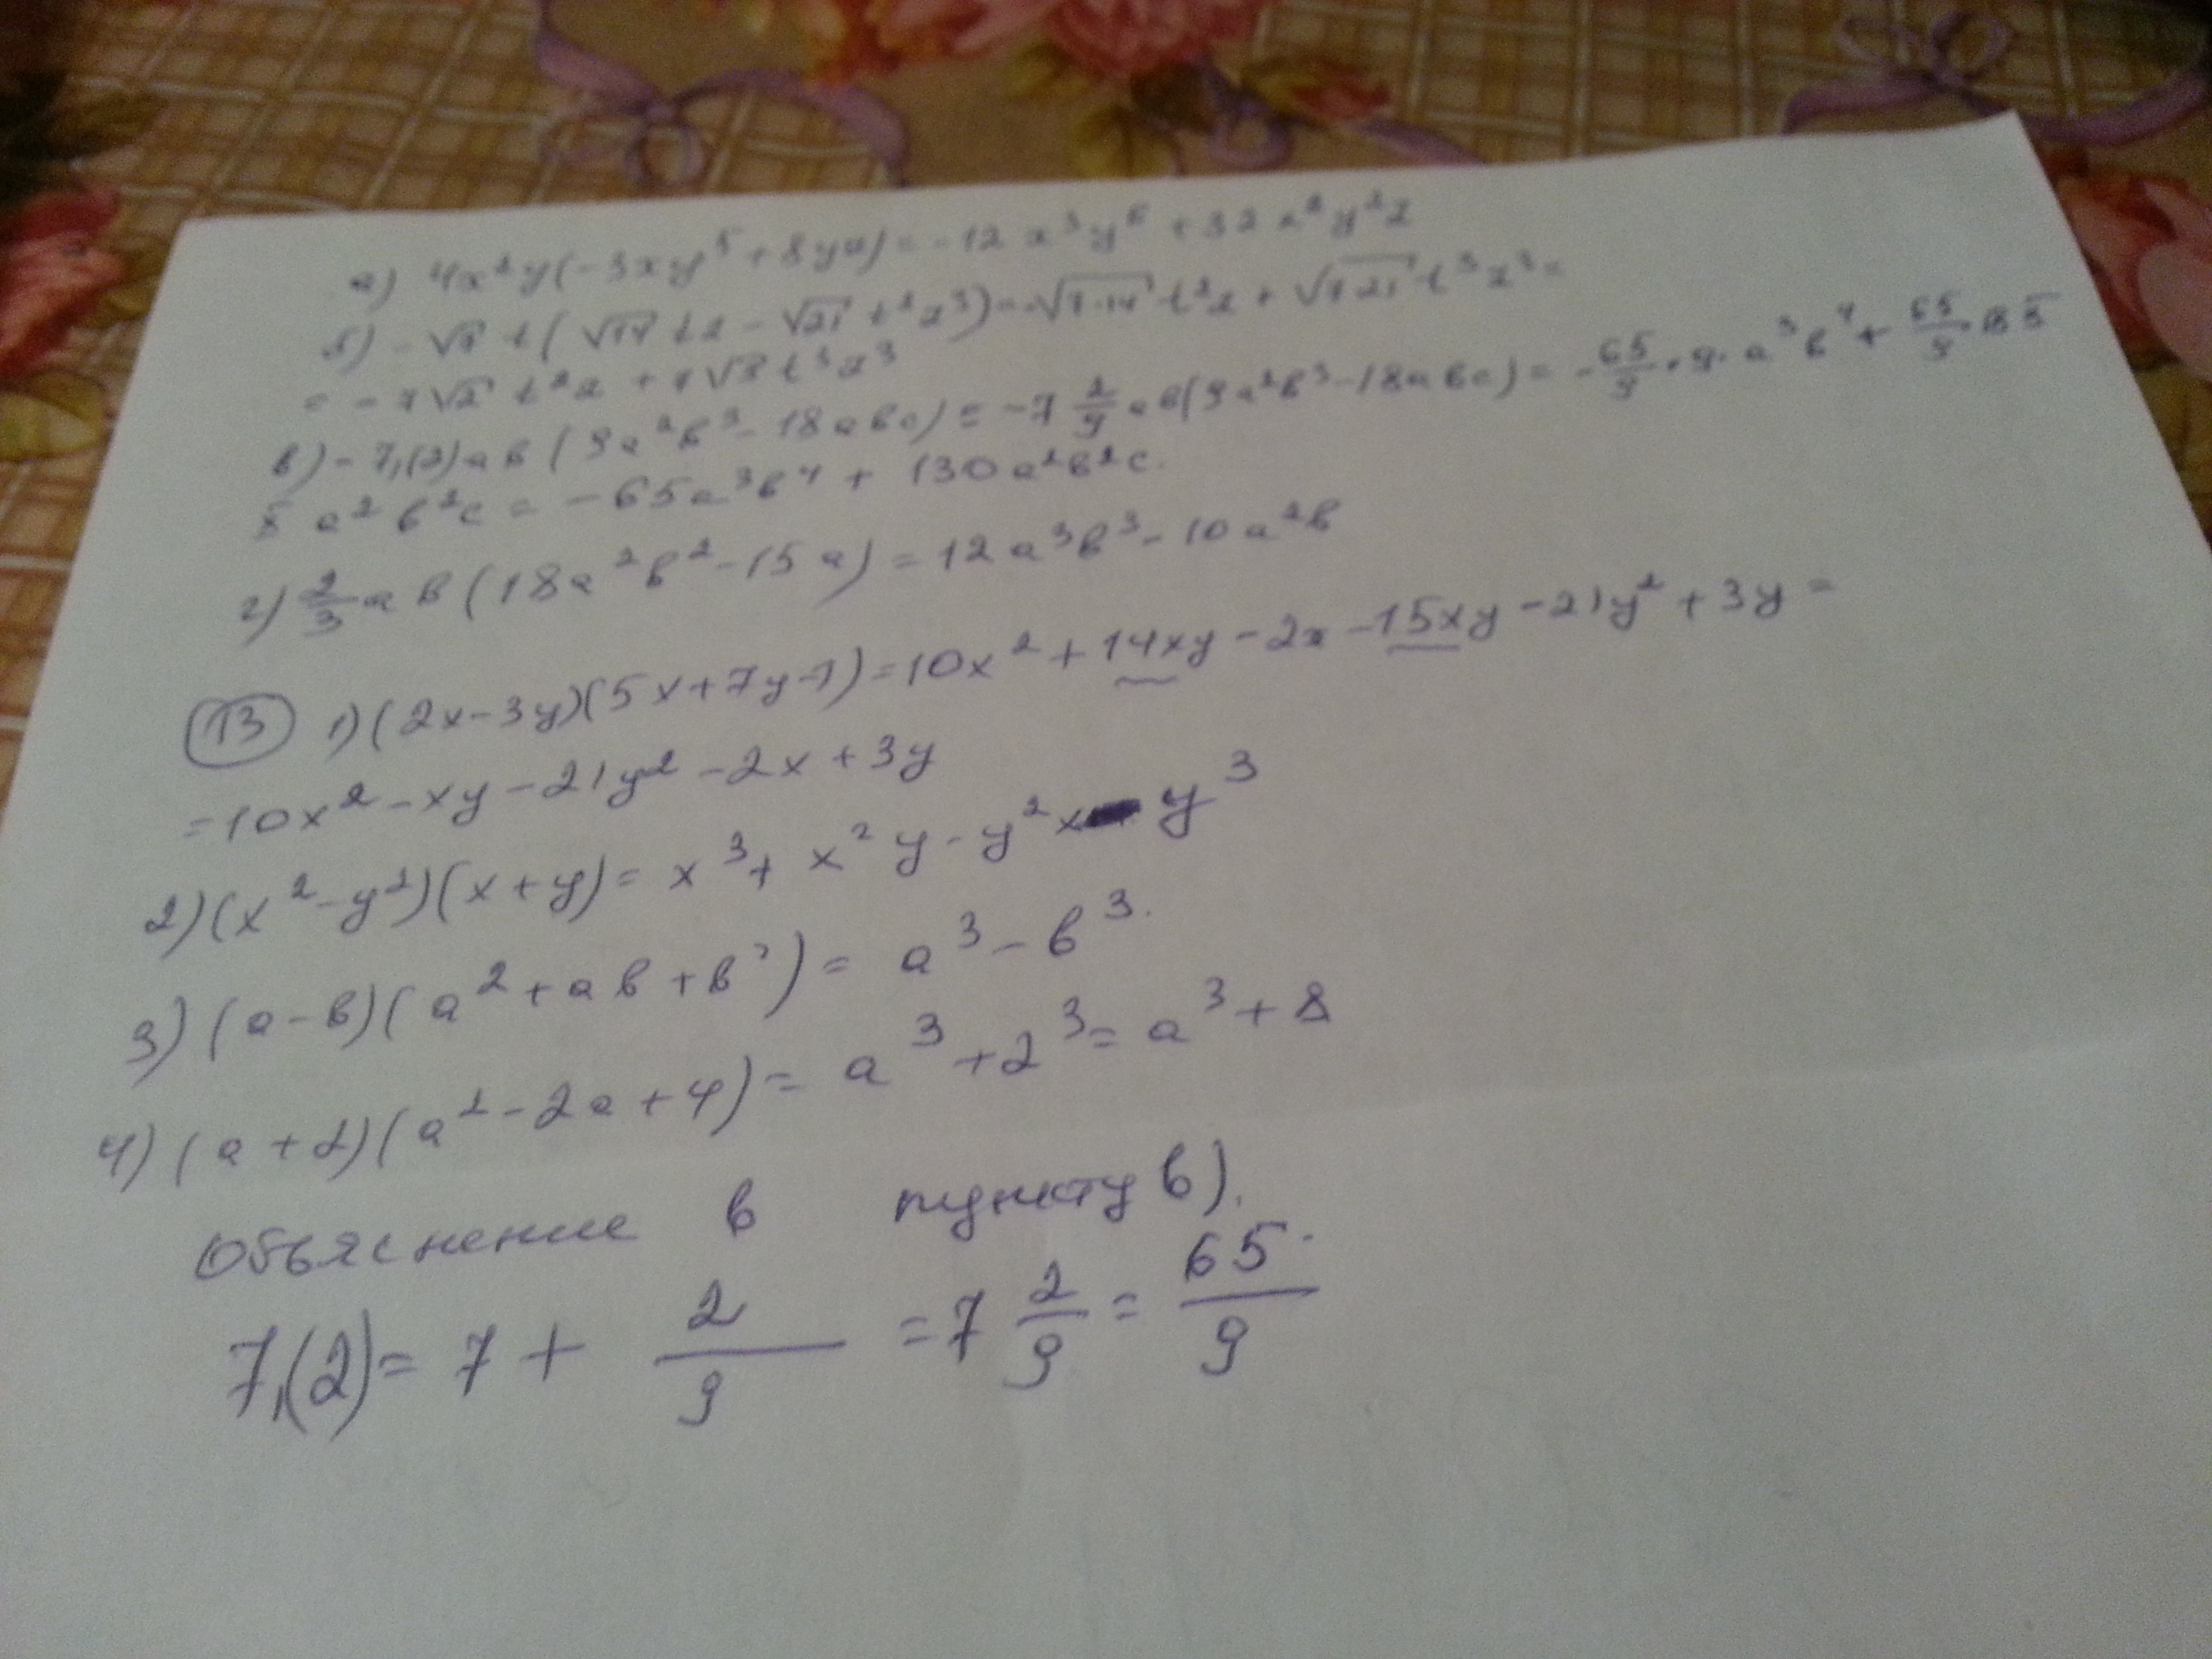 а) 4x²y(-3xy⁵+8yz)=-12x³y⁶+32x²y²z
б) -√7 t(√14 tz-√21 t²z³)=-√7·14 t²z+√7·21 t³z³=
=-7√2 t²z+7√3 t³z³
в) -7,(2)ав(9а²в³-18авс)=-7 2/9 ав(9а²в³-18авс)=-65/9·9·а³в⁴+65/9·18
× а²в²с=-65а³в⁴+130а²в²с.
г) 2/3 ав(18а²в²-15а)=12а³в³-10а²в
13 1) (2x-3y)(5x+7y-1)=10x²+14xy-2x-15xy-21y²+3y=
=10x²-xy-21y²-2x+3y
2) (x²-y²)(x+y)=x³+x²y-y²x-y³
3) (а-в)(а²+ав+в²)=а³-в³.
4) (а+2)(а²-2а+4)=а³+2³=а³+8
Объяснение в пункту в).
7,(2)=7+2/9=7 2/9=65/9